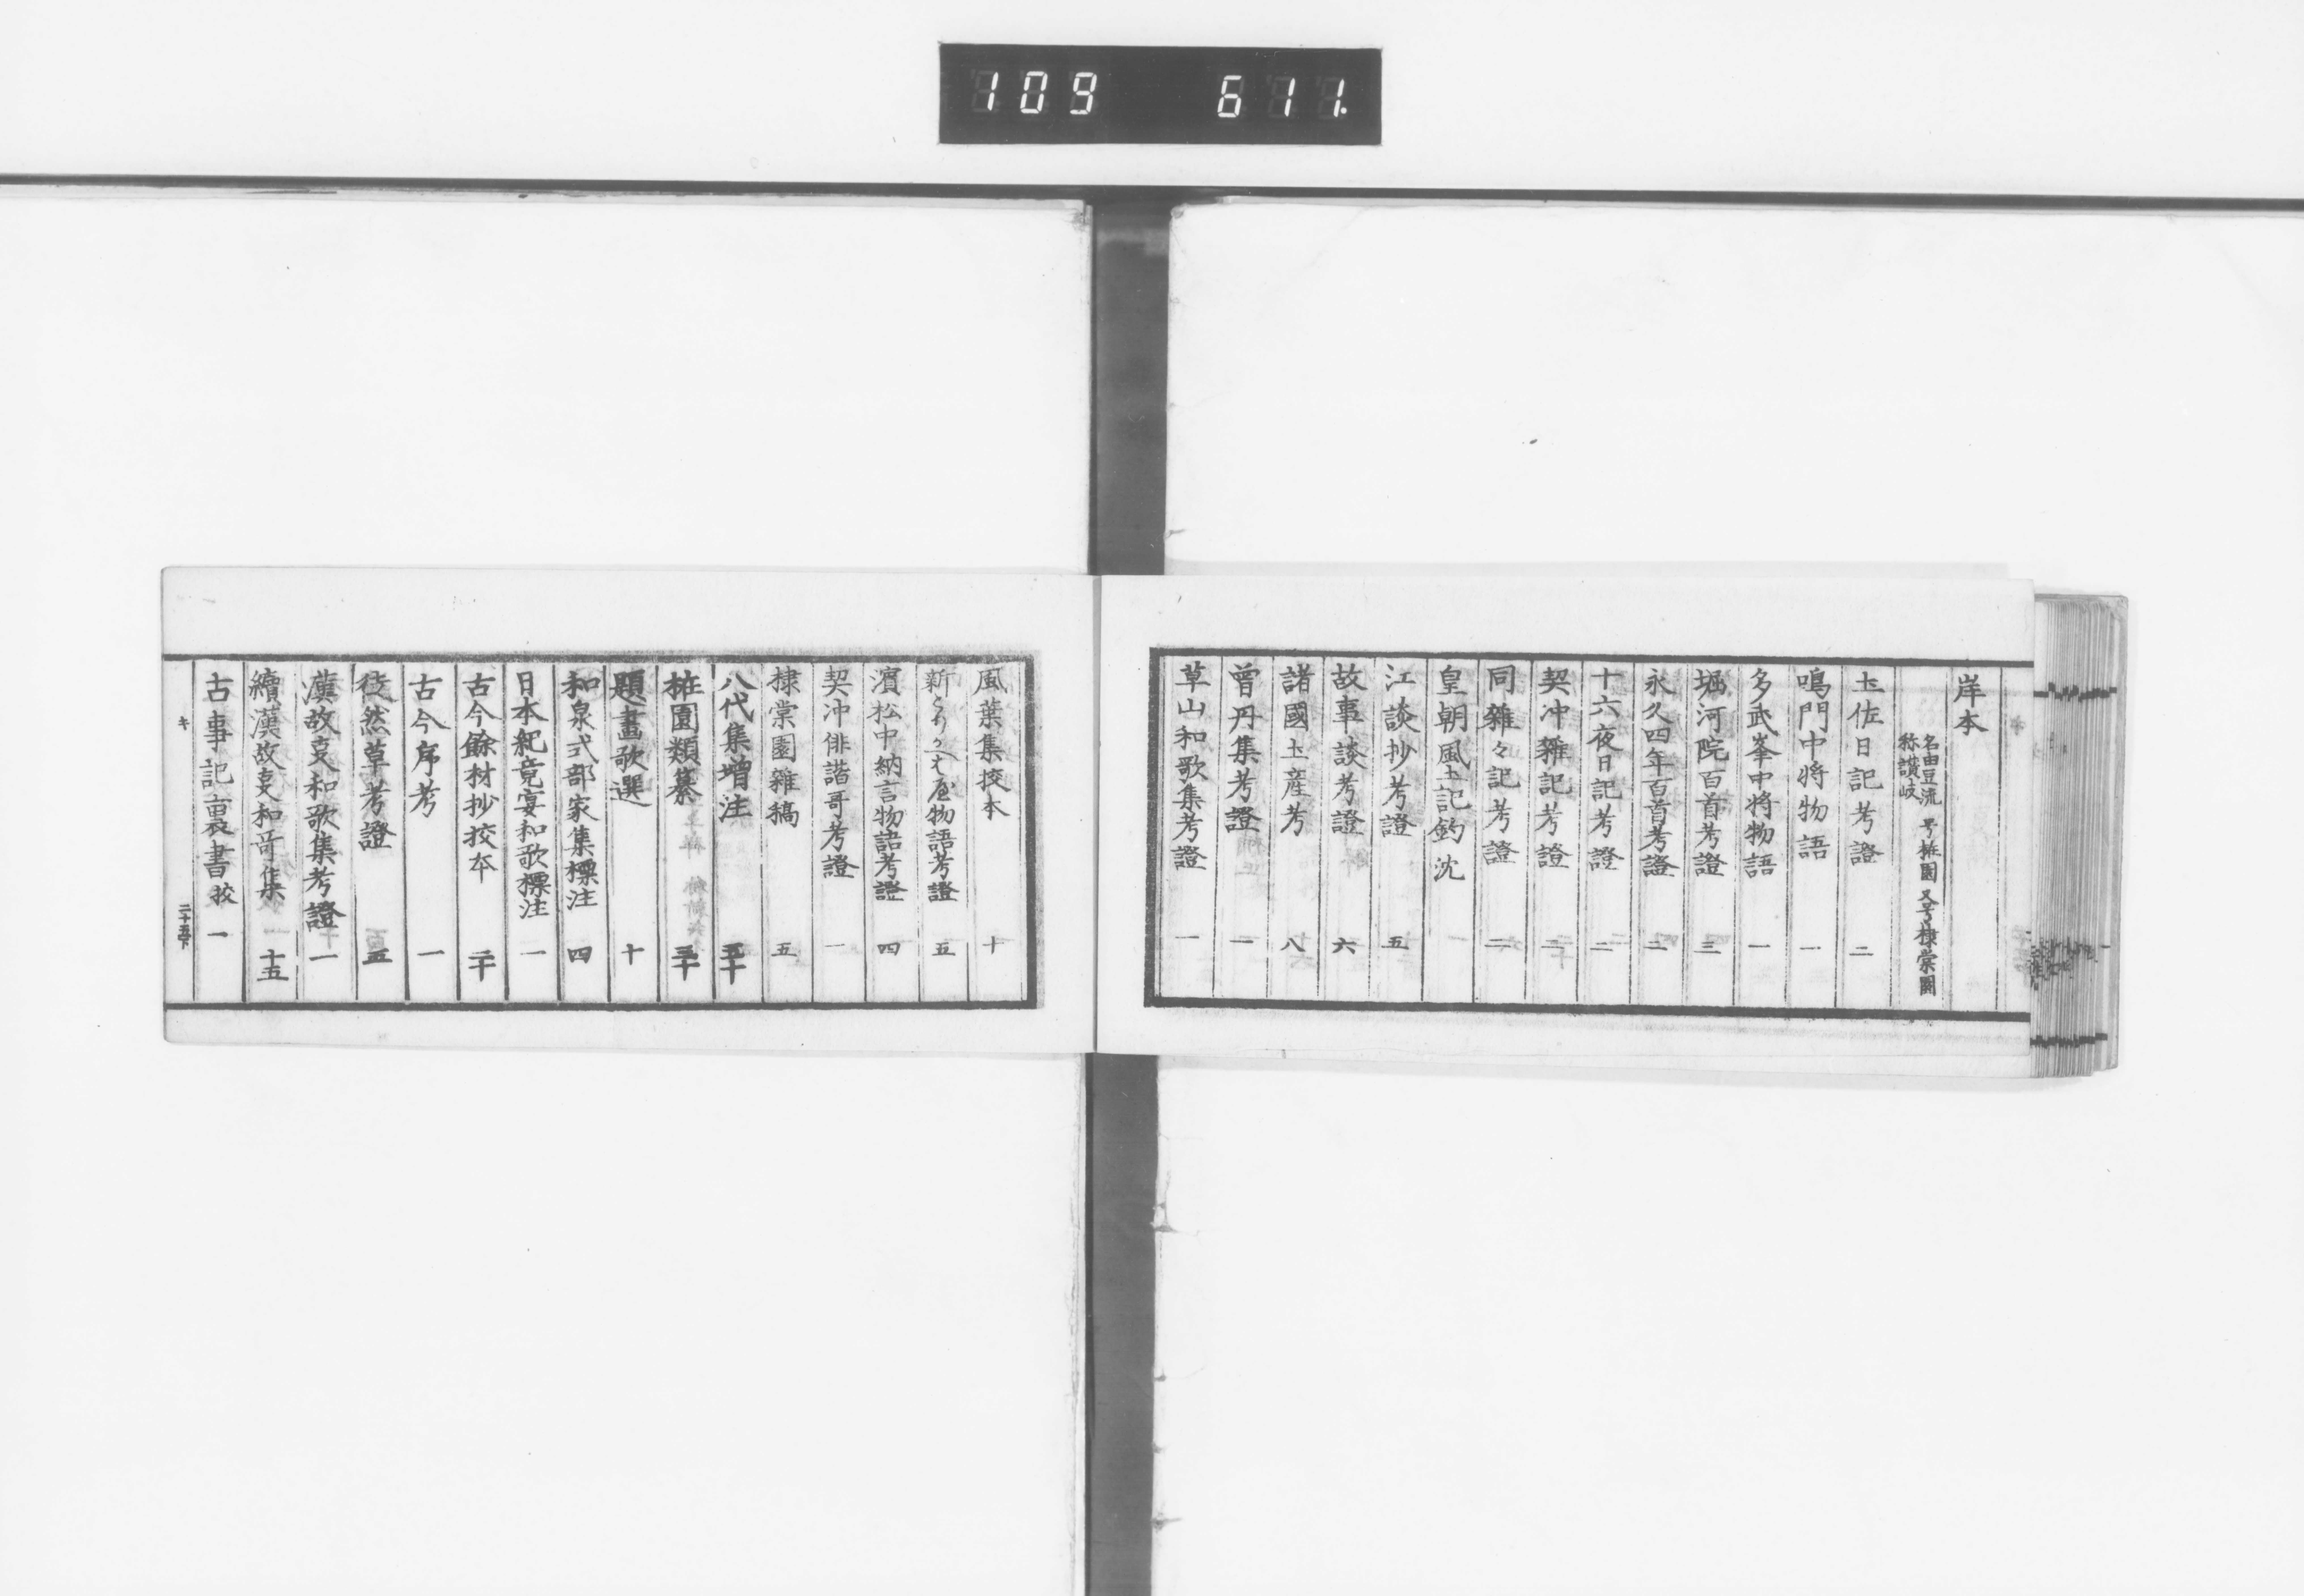 109 611.
岸本
名由豆流 号㯃園 又号棣棠園
称讃岐
土佐日記考證 二
鳴門中将物語 一
多武峯中将物語 一
堀河院百首考證 三
永久四年百首考證 二
十六夜日記考證 二
契冲雜記考證 二十
同雜々記考證 二
皇朝風土記鈎沈
江談抄考證 五
故事談考證 六
諸國土産考 八
曽丹集考證 一
草山和歌集考證 一
風葉集挍本 十
新とりかへはや物語考證 五
濱松中納言物語考證 四
契冲俳諧哥考證 一
棣棠園雜稿 五
八代集増注 五十
園類纂 三十
題畫歌選 十
和泉式部家集標注 四
日本紀竟宴和歌標注 一
古今餘材抄挍本 二十
古今序考 一
徒然草考證 五
漢故叓和歌集考證 一
繪漢故叓和哥集 十五
古事記裏書挍 一
キ 二十五下